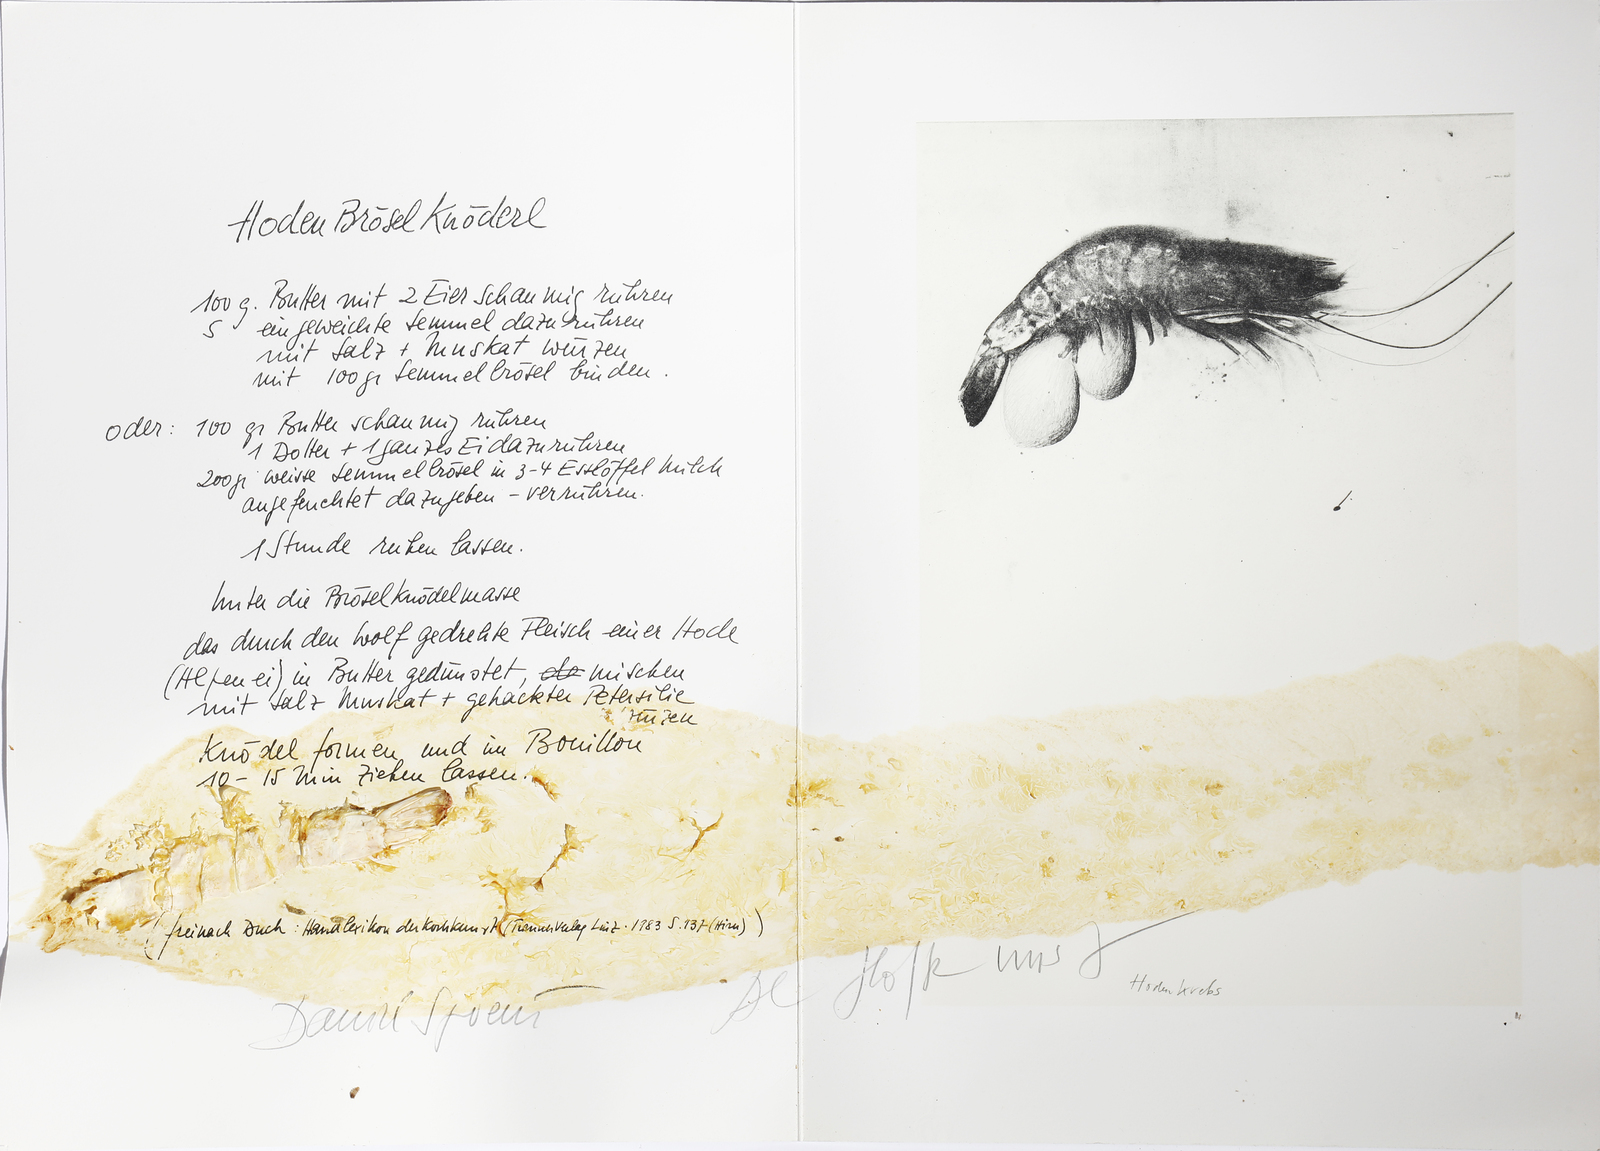 Hoden Brösel Knöderl
100 g. Butter mit 2 Eier schaumig rühren
5 eingeweichte Semmel dazurühren
mit Salz + Muskat würzen
mit 100 gr Semmelbrösel binden.
oder: 100 gr Butter schaumig rühren
1 Dotter + 1 ganzes Ei dazurühren
200 gr weisse Semmelbrösel in 3-4 Esslöffel Milch
angefeuchtet dazugeben - verrühren.
1 Stunde ruhen lassen.
Unter die Bröselknödelmasse
das durch den Wolf gedrehte Fleisch einer Hode
in Butter gedünstet, mischen
mit Salz Muskat + gehackter Petersilie
Knödel formen und im Bouillon
10 - 15 Min ziehen lassen.
(frei nach Duch: Handlexikon der Kochkunst (Traunerverlag Linz. 1983 S. 137 (Hirn))
Daniel Spoerri
Hodenkrebs